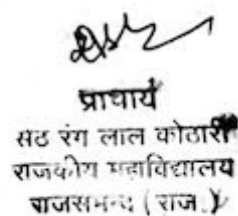 प्राचार्य
सठ रंग लाल कोठारी
राजकीय महाविद्यालय
राजसमन्द (राज.)